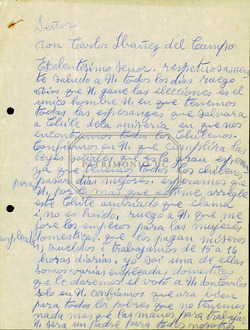 Señor
Don Carlos Ibañez del Campo
Exelentisimo Señor. respetuosamen
te saludo a Ud. todos los dias ruego
a dios que Ud. gane las elecciones es el
unico hombre Ud. en que tenemos
todas las esperanzas que salvara
a Chile de la miseria en que nos
encontramos todos los chilenos
Confiamos en Ud. que cumplira las
leyes sociales
ya que tenemos todos los chilenos
para dias mejores esperamos que
Ud. por lo menos que arregle
este Chile ambriado que clama
i no es hoido, ruego a Ud. que me
jore los empleos para las mujeres
domesticas que los pagan miseros
sueldos i trabajamos de 15 a 16
horas diarias, yo soi una de ellas
somos varias empleadas domesticas
que le daremos el voto a Ud. don Carlos
solo en Ud. confiamos que ara bien
para todos los pobres que no tenemos
nada mas que las manos para trabajar
Ud. sera un padre para todos nosotros